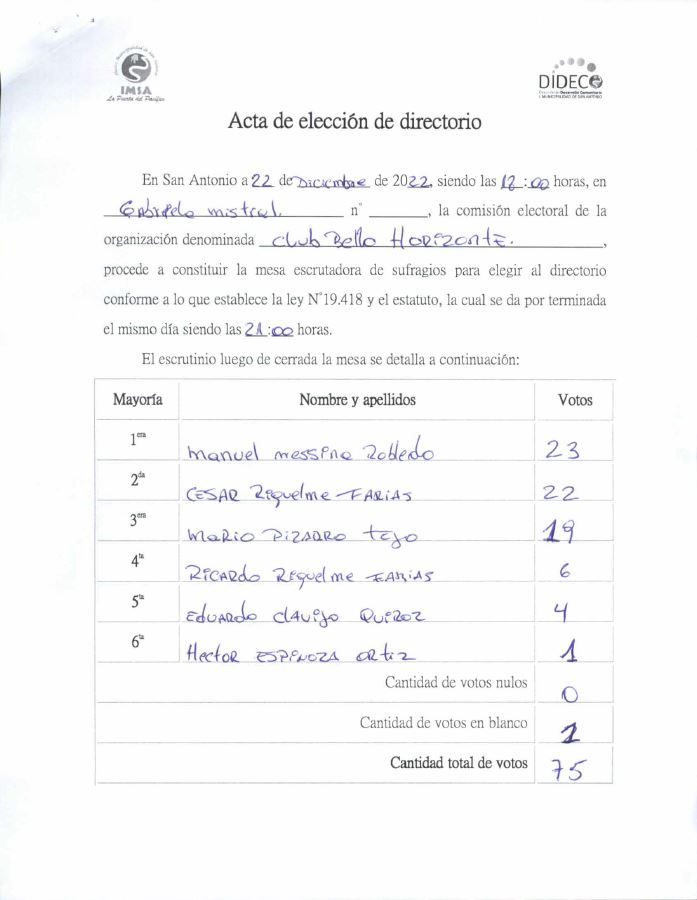 IMSA
La Puerta del Pacífico
DIDECO
I. MUNICIPALIDAD DE SAN ANTONIO
Acta de elección de directorio
En San Antonio a 22 de Diciembre de 2022, siendo las 18:00 horas, en
Gabriela mistral. n° ________, la comisión electoral de la
organización denominada Club Bello HORIZONTE.,
procede a constituir la mesa escrutadora de sufragios para elegir al directorio
conforme a lo que establece la ley N°19.418 y el estatuto, la cual se da por terminada
el mismo día siendo las 21:00 horas.
El escrutinio luego de cerrada la mesa se detalla a continuación:
Mayoría Nombre y apellidos Votos
1era manuel messina Robledo 23
2da CESAR Riquelme FARIAS 22
3era MARIO PIZARRO tejo 19
4ta RICARDo Riquelme FARIAS 6
5ta EduARdo clavijo QuiROZ 4
6ta Hector ESPINOZA ortiz 1
Cantidad de votos nulos 0
Cantidad de votos en blanco 1
Cantidad total de votos 75